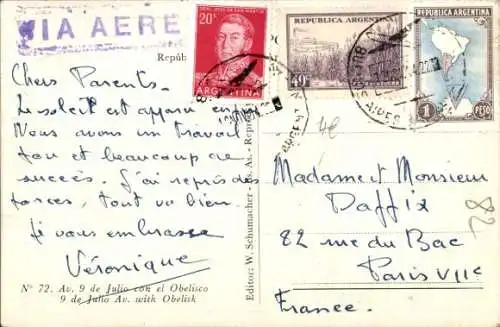 VIA AERE
Repúb
20
ARGENTINA
REPUBLICA ARGENTINA
40
REPUBLICA ARGENTINA
1 PESO
Chers Parents.
Le soleil est apparu enfin
Nous avons un travail
fou et beaucoup de
succès. J'ai repris des
forces, tout va bien.
Je vous embrasse
Véronique
Nº 72. Av. 9 de Julio con el Obelisco
9 de Julio Av. with Obelisk
Editor: W. Schumacher - Bs. As. - Repres
4e
82
Madame et Monsieur
Daffix
82 rue du Bac
Paris VIIe
France.